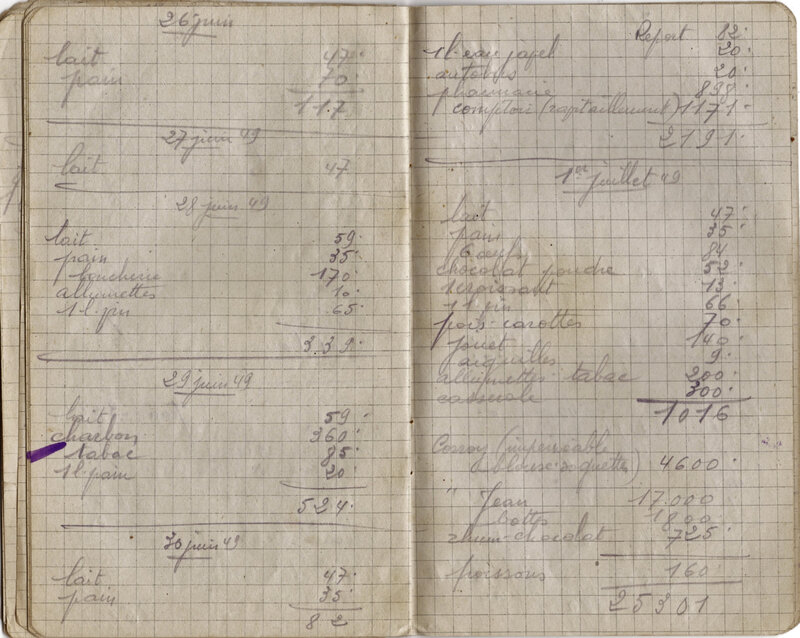 26 juin
lait 47.
pain 70.
117
27 juin 49
lait 47
28 juin 49
lait 59.
pain 35.
boucherie 170.
allumettes 10.
1 l. pin 65.
339.
29 juin 49
lait 59.
charbon 360.
tabac 85.
1 l. pain 20.
524.
30 juin 49
lait 47.
pain 35.
82
Report 82.
1 l. eau javel 20.
autobus 20.
pharmacie 898.
comptoir (raptaillement) 1171.
2191.
1er juillet 49
lait 47.
pain 35.
6 oeufs 84
chocolat poudre 52.
1 croissant 13.
1 l. pin 66
pois-carottes 70.
jouet 140.
aiguilles 9.
allumettes tabac 200.
casserole 300.
1016
imperméable
4600.
" Jean 17.000
bottes 1800
rhum-chocolat 725.
poissons 160
25301